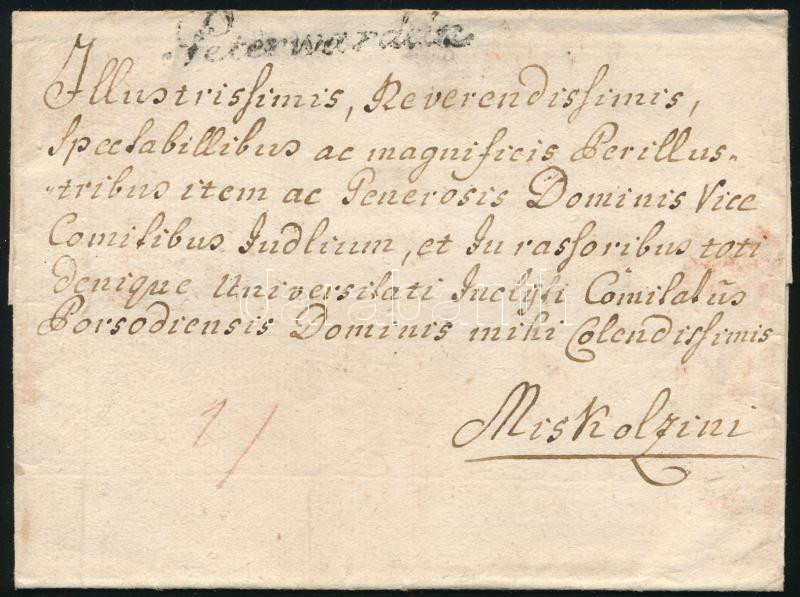 Peterwardein
Illustrissimis, Reverendissimis,
Spectabillibus ac magnificis Perillus„
„tribus item ac Generosis Dominis Vice
Comitibus Judlium, et Ju rassoribus toti
denique Universitati Inclyti Comitatus
Borsodiensis Dominis mihi Colendissimis
Miskolzini